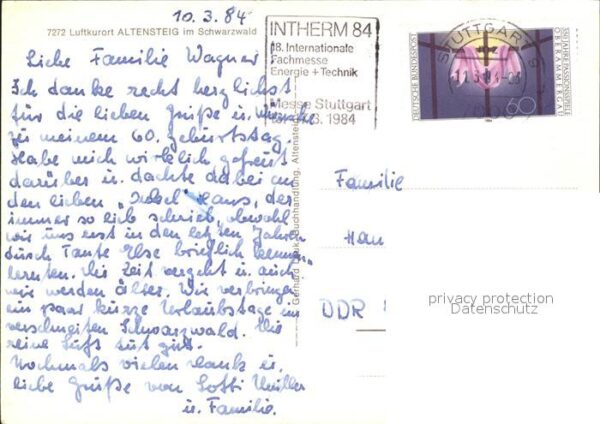 10.3.84
7272 Luftkurort ALTENSTEIG im Schwarzwald
Liebe Familie Wagner!
Ich danke recht herzlichst
für die lieben Grüße u. Wünsche
zu meinem 60. Geburtstag.
Habe mich wirklich gefreut
darüber u. dachte dabei an
den lieben „ Hans, der
immer so lieb schrieb, obwohl
wir uns erst in den letzten Jahren
durch Tante Else brieflich kennen
lernten. Die Zeit vergeht u. auch
wir werden älter. Wir verbringen
ein paar kurze Urlaubstage im
verschneiten Schwarzwald. Die
reine Luft tut gut.
Nochmals vielen Dank u.
liebe Grüße von Lotti
u. Familie.
Gerhard Buchhandlung, Altensteig
INTHERM 84
18. Internationale
Fachmesse
Energie + Technik
Messe Stuttgart
3.1984
STUTTGART
DEUTSCHE BUNDESPOST
350 JAHRE PASSIONSSPIELE
OBERAMMERGAU
60
Familie
Han
DDR
privacy protection
Datenschutz